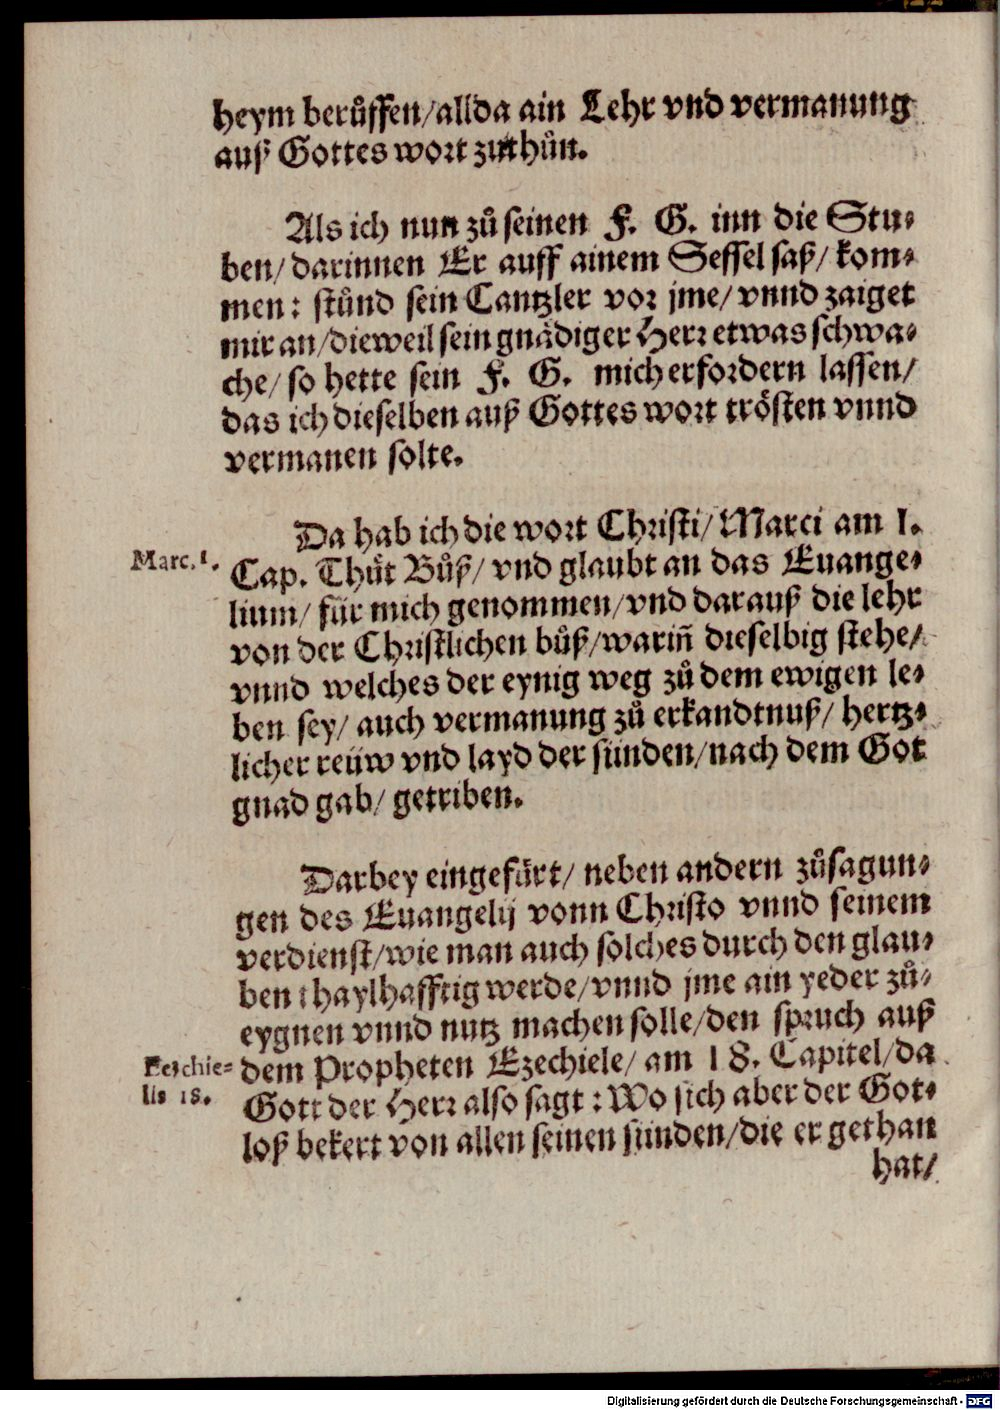 heym beruͦffen/allda ain Lehr vnd vermanung
auß Gottes wort zuthuͦn.
Als ich nun zuͦ seinen F. G. inn die Stu⸗
ben/ darinnen Er auff ainem Sessel saß/ kom⸗
men: stuͦnd sein Cantzler vor jme/ vnnd zaiget
mir an/dieweil sein gnaͤdiger Herr etwas schwa⸗
che/ so hette sein F. G. mich erfordern lassen/
das ich dieselben auß Gottes wort troͤsten vnnd
vermanen solte.
Da hab ich die wort Christi/ Marci am 1.
Marc. 1.
Cap. Thuͦt Buͦß/ vnd glaubt an das Euange⸗
lium/ für mich genommen/vnd darauß die lehr
von der Christlichen buͦß/warin̄ dieselbig stehe/
vnnd welches der eynig weg zuͦ dem ewigen le⸗
ben sey/ auch vermanung zuͦ erkandtnuß/ hertz⸗
licher reüw vnd layd der sünden/nach dem Got
gnad gab/ getriben.
Darbey eingefürt/ neben andern zuͦsagun⸗
gen des Euangelij vonn Christo vnnd seinem
verdienst/wie man auch solches durch den glau⸗
ben thaylhafftig werde/vnnd jme ain yeder zuͦ⸗
eygnen vnnd nutz machen solle/den spruch auß
Ezechie=
lis 18.
dem Propheten Ezechiele/ am 18. Capitel/da
Gott der Herr also sagt: Wo sich aber der Got⸗
loß bekert von allen seinen sünden/die er gethan
hat/
Digitalisierung gefördert durch die Deutsche Forschungsgemeinschaft - DFG